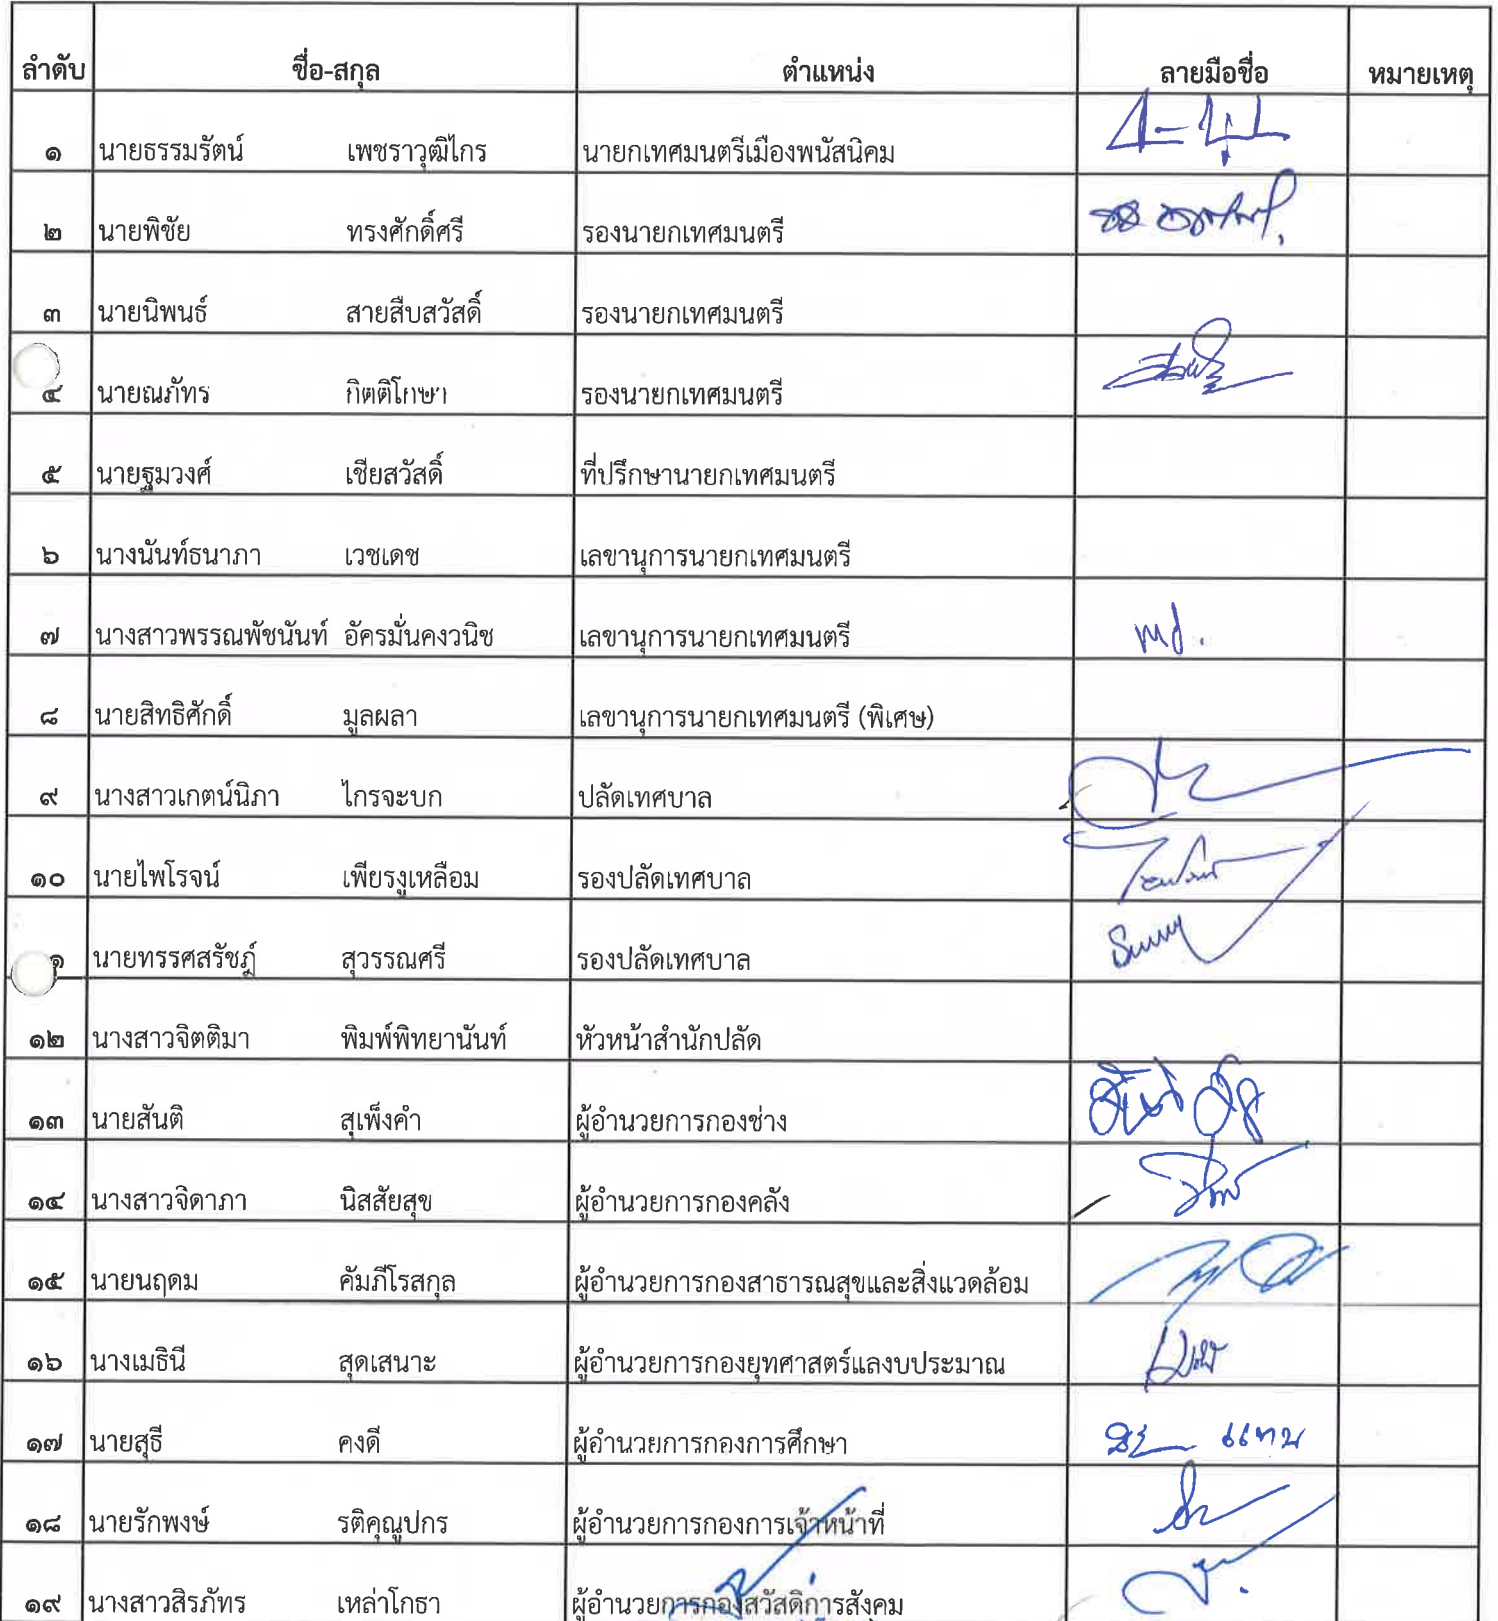 ลำดับ ชื่อ-สกุล ตำแหน่ง ลายมือชื่อ หมายเหตุ
๑ นายธรรมรัตน์ เพชราวุฒิไกร นายกเทศมนตรีเมืองพนัสนิคม
๒ นายพิชัย ทรงศักดิ์ศรี รองนายกเทศมนตรี
๓ นายนิพนธ์ สายสืบสวัสดิ์ รองนายกเทศมนตรี
๔ นายณภัทร กิตติโกษา รองนายกเทศมนตรี
๕ นายฐมวงศ์ เชียสวัสดิ์ ที่ปรึกษานายกเทศมนตรี
๖ นางนันท์ธนาภา เวชเดช เลขานุการนายกเทศมนตรี
๗ นางสาวพรรณพัชนันท์ อัครมั่นคงวนิช เลขานุการนายกเทศมนตรี
๘ นายสิทธิศักดิ์ มูลผลา เลขานุการนายกเทศมนตรี (พิเศษ)
๙ นางสาวเกตน์นิภา ไกรจะบก ปลัดเทศบาล
๑๐ นายไพโรจน์ เพียรงูเหลือม รองปลัดเทศบาล
๑ นายทรรศสรัชฎ์ สุวรรณศรี รองปลัดเทศบาล
๑๒ นางสาวจิตติมา พิมพ์พิทยานันท์ หัวหน้าสำนักปลัด
๑๓ นายสันติ สุเพ็งคำ ผู้อำนวยการกองช่าง
๑๔ นางสาวจิดาภา นิสสัยสุข ผู้อำนวยการกองคลัง
๑๕ นายนฤดม คัมภีโรสกุล ผู้อำนวยการกองสาธารณสุขและสิ่งแวดล้อม
๑๖ นางเมธินี สุดเสนาะ ผู้อำนวยการกองยุทศาสตร์แลงบประมาณ
๑๗ นายสุธี คงดี ผู้อำนวยการกองการศึกษา แทน
๑๘ นายรักพงษ์ รติคุณูปกร ผู้อำนวยการกองการเจ้าหน้าที่
๑๙ นางสาวสิรภัทร เหล่าโกธา ผู้อำนวยการกองสวัสดิการสังคม